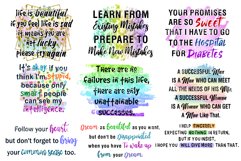 life is beautiful,
if you feel life is sad
it means you are
not lucky.
Please try again
LEARN FROM
Existing Mistakes
PREPARE TO
Make New Mistakes
YOUR PROMISES
ARE SO SWEET
THAT I HAVE TO GO
TO THE HOSPITAL
FOR DIABETES
It's okay if you
think I'm stupid,
because only
smart people
can see my
intelligence.
There are no
failures in this life,
there are only
unattainable
successes.
A SUCCESSFUL MAN
IS A MAN WHO CAN MEET
ALL THE NEEDS OF HIS WIFE.
A SUCCESSFUL WOMAN
IS A WOMAN WHO
GETS A SUCCESSFUL MAN
Follow your heart,
but don't forget to bring
your common sense too.
Dream as beautiful as you want,
but don't be disappointed
when you have to wake up
from your dream.
HELP SINCERELY
EXPECTING NOTHING IN RETURN,
BUT IF I'M THE ONE HELPING,
I HOPE YOU WILL GIVE MORE THAN THAT.